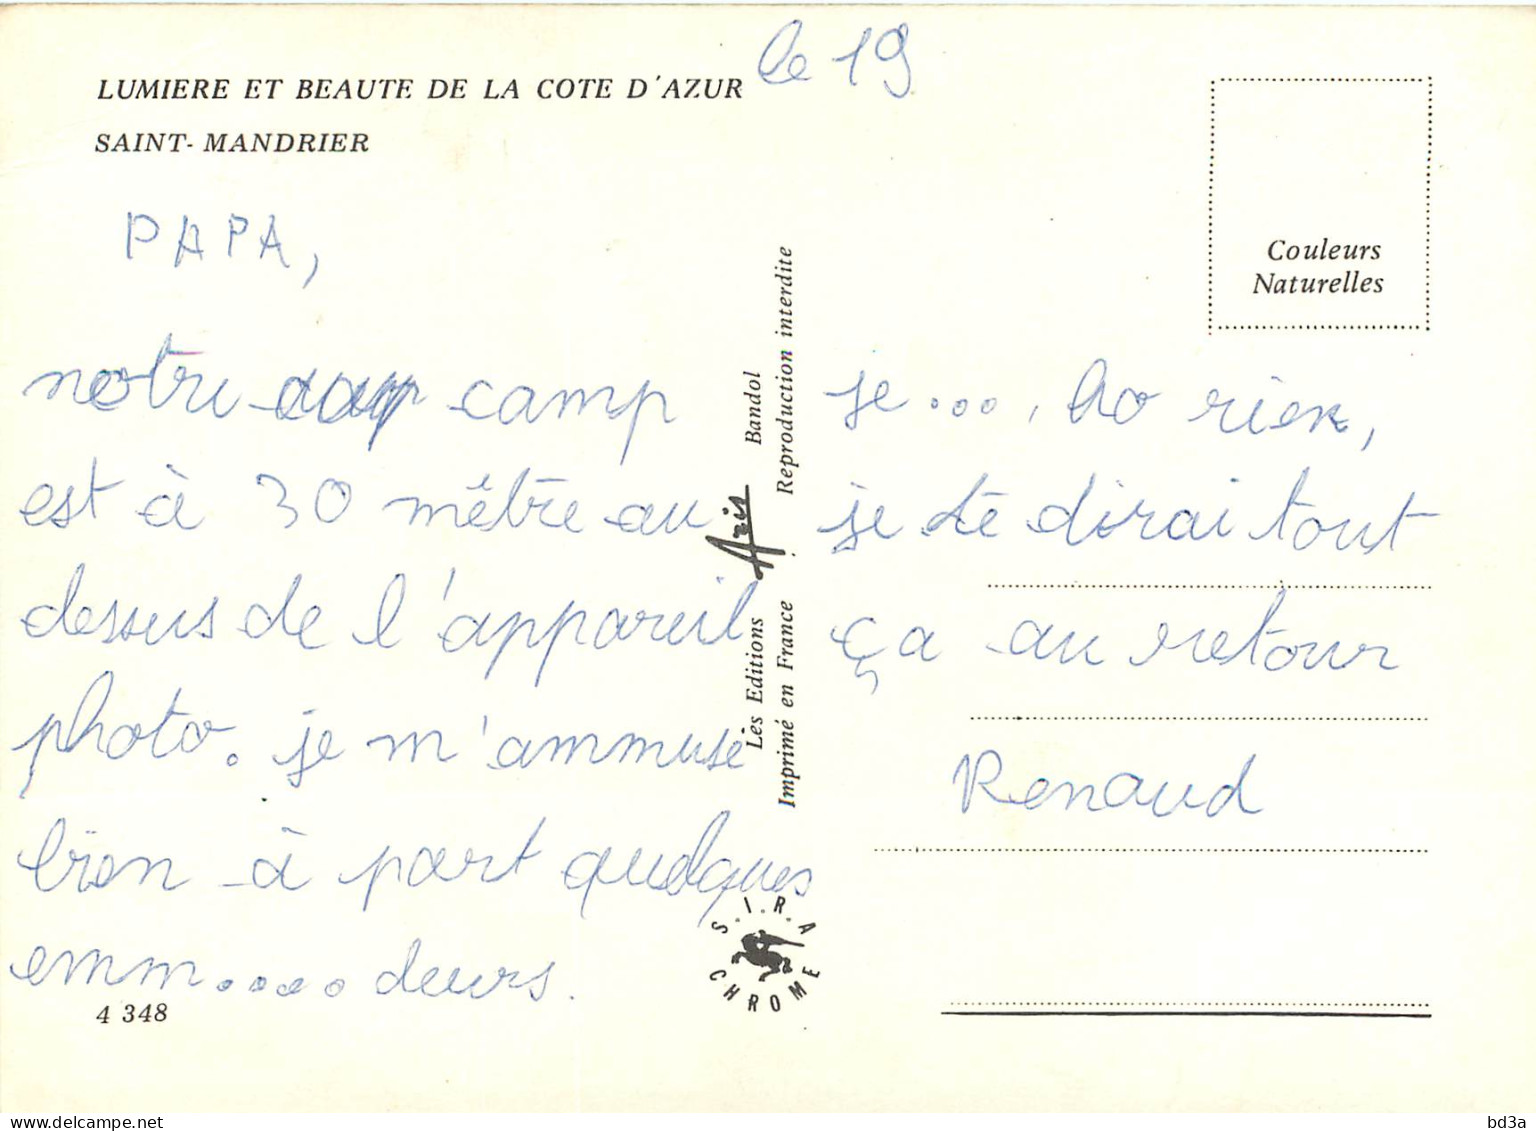 le 19
LUMIERE ET BEAUTE DE LA COTE D'AZUR
SAINT-MANDRIER
PAPA,
notre camp
est à 30 mêtre au
dessus de l'appareil
photo. je m'ammuse
bien à part quelques
emm.... deurs.
4 348
Les Editions Aris Bandol
Imprimé en France Reproduction interdite
S.I.R.A
CHROME
Couleurs
Naturelles
je ..., ho rien,
je te dirai tout
ça au retour
Renaud
www.delcampe.net
bd3a